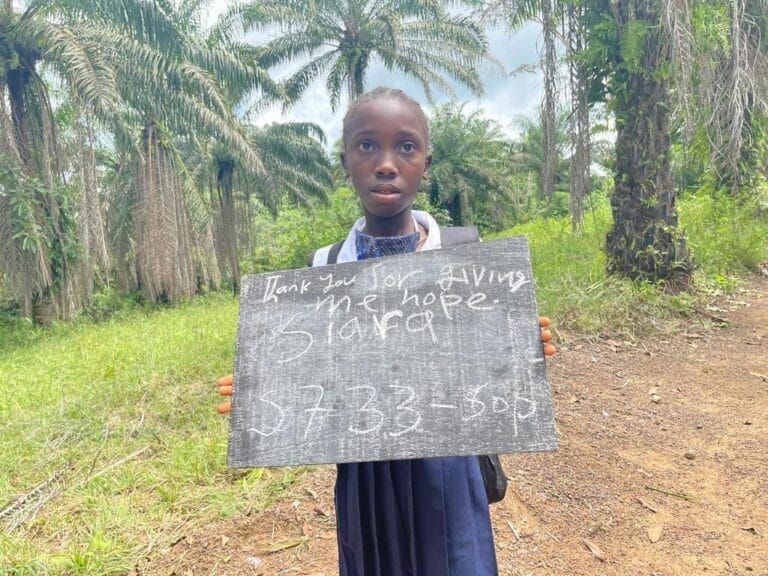 Thank you for giving
me hope.
Siara
S733-50p